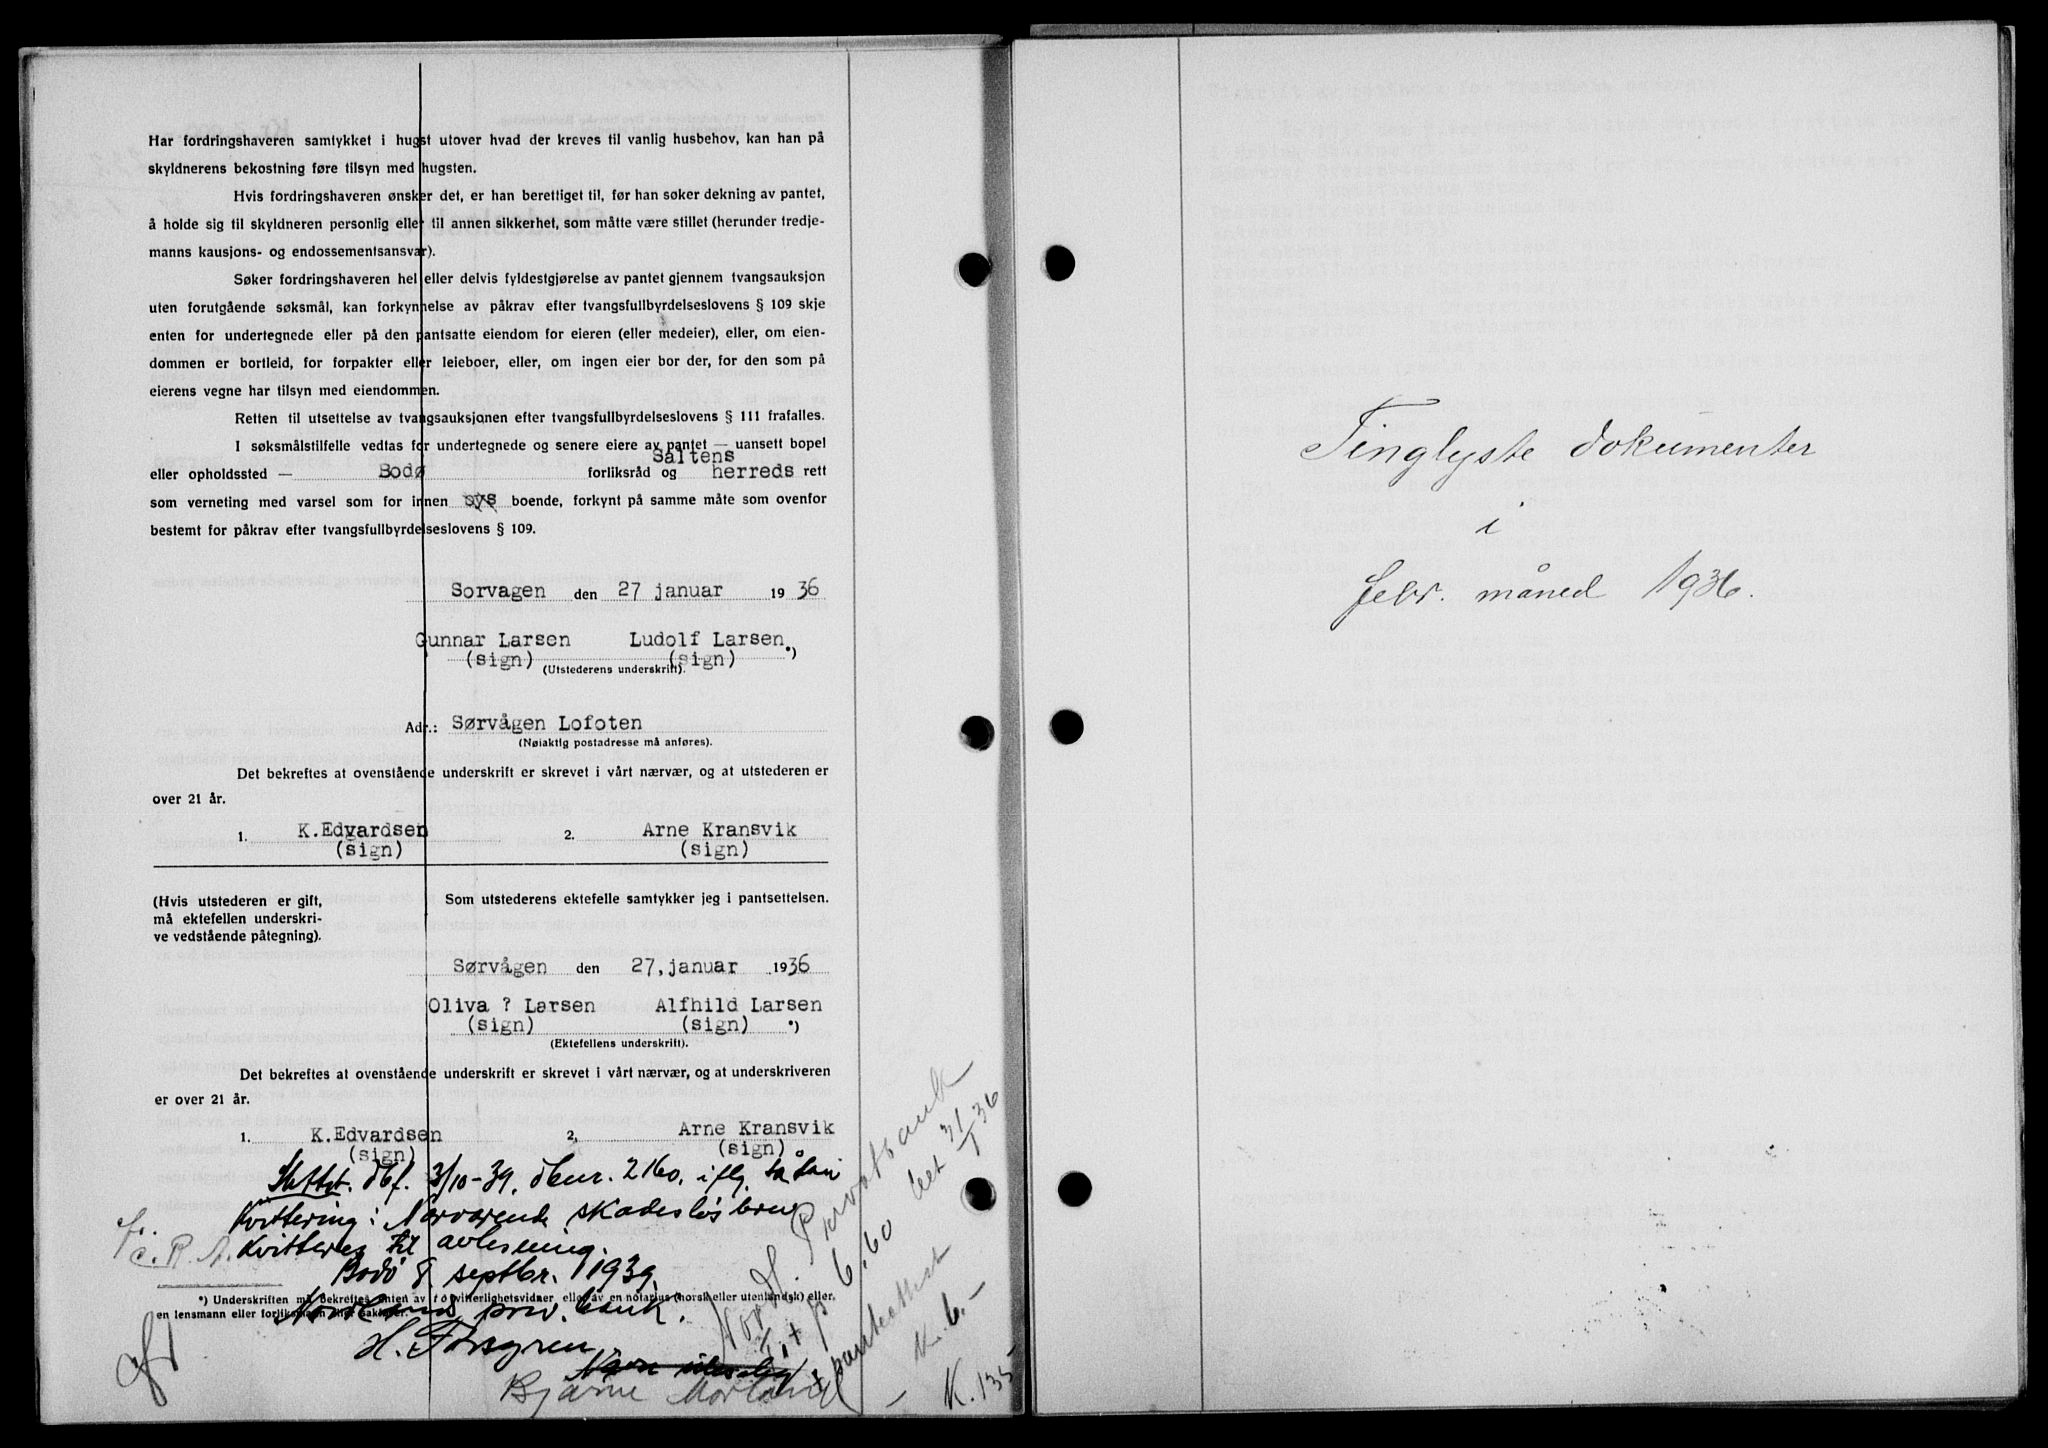 Har fordringshaveren samtykket i hugst utover hvad der kreves til vanlig husbehov, kan han på
skyldnerens bekostning føre tilsyn med hugsten.
Hvis fordringshaveren ønsker det, er han berettiget til, før han søker dekning av pantet,
å holde sig til skyldneren personlig eller til annen sikkerhet, som måtte være stillet (herunder tredje-
manns kausjons- og endossementsansvar).
Søker fordringshaveren hel eller delvis fyldestgjørelse av pantet gjennem tvangsauksjon
uten forutgående søksmål, kan forkynnelse av påkrav efter tvangsfullbyrdelseslovens § 109 skje
enten for undertegnede eller på den pantsatte eiendom for eieren (eller medeier), eller, om eien-
dommen er bortleid, for forpakter eller leieboer, eller, om ingen eier bor der, for den som på
eierens vegne har tilsyn med eiendommen.
Retten til utsettelse av tvangsauksjonen efter tvangsfullbyrdelseslovens § 111 frafalles.
I søksmålstilfelle vedtas for undertegnede og senere eiere av pantet — uansett bopel
Saltens
eller opholdssted — Bodø forliksråd og herreds rett
som verneting med varsel som for innen sys boende, forkynt på samme måte som ovenfor
bestemt for påkrav efter tvangsfullbyrdelseslovens § 109.
Sorvagen den 27 januar 1936
Gunnar Larsen Ludolf Larsen *)
(sign) (sign)
(Utstederens underskrift).
Adr.: Sørvågen Lofoten
(Nøiaktig postadresse må anføres).
Det bekreftes at ovenstående underskrift er skrevet i vårt nærvær, og at utstederen er
over 21 år.
1. K.Edvardsen 2. Arne Kransvik
(sign) (sign)
(Hvis utstederen er gift,
må ektefellen underskri-
ve vedstående påtegning).
Som utstederens ektefelle samtykker jeg i pantsettelsen.
Sørvågen den 27,januar 1936
Oliva ? Larsen Alfhild Larsen
(sign) (sign) *)
(Ektefellens underskrift).
Det bekreftes at ovenstående underskrift er skrevet i vårt nærvær, og at underskriveren
er over 21 år.
1. K.Edvardsen 2, Arne Kransvik
(sign) (sign)
Slettet. dbf. 3/10-39, dbnr. 2160. iflg. sålydende
Kvittering: Nærværende skadesløsbrev
kvitteres til avlesning.
Bodø 8. septbr. 1939.
*) Underskriften må bekreftes enten av to vitterlighetsvidner eller av en notarius (norsk eller utenlandsk) eller
en lensmann eller forliksmann
Nordland priv. bank.
H. Forsgren
Bjarne Morland
Nordl. Privatbank
6.60 bet 31/1 36
pantattest
K. 6.-
K. 135
Tinglyste dokumenter
i
febr. måned 1936.